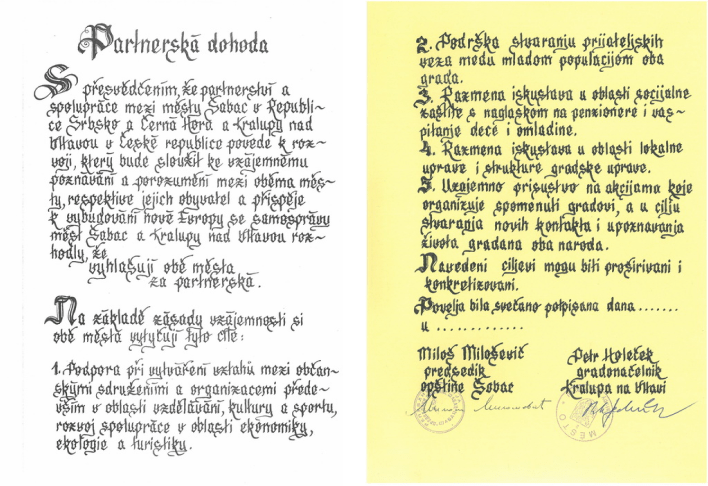 Partnerská dohoda
S přesvědčením, že partnerství a
spolupráce mezi městy Šabac v Republi-
ce Srbsko a Černá Hora a Kralupy nad
Vltavou v České republice povede k roz-
voji, který bude sloužit ke vzájemnému
poznávání a porozumění mezi oběma měs-
ty, respektive jejich obyvatel a přispěje
k vybudování nové Evropy se samosprávy
měst Šabac a Kralupy nad Vltavou roz-
hodly, že
vyhlašují obě města
za partnerská.
Na základě zásady vzájemnosti si
obě města vytyčují tyto cíle:
1. Podpora při vytváření vztahů mezi občan-
skými sdruženími a organizacemi přede-
vším v oblasti vzdělávání, kultury a sportu,
rozvoj spolupráce v oblasti ekonomiky,
ekologie a turistiky.
2. Podrška stvaranju prijateljskih
veza među mladom populacijom oba
grada.
3. Razmena iskustava u oblasti socijalne
zaštite s naglaskom na penzionere i vas-
pitanje dece i omladine.
4. Razmena iskustava u oblasti lokalne
uprave i strukture gradske uprave.
5. Uzajemno prisustvo na akcijama koje
organizuje spomenuti gradovi, a u cilju
stvaranja novih kontakta i upoznavanja
života građana oba naroda.
Navedeni ciljevi mogu biti proširivani i
konkretizovani.
Povelja bila svečano potpisana dana .......
u .............
Miloš Milošević
predsedik
opštine Šabac
Petr Holeček
gradonačelnik
Kralupa na Vltavi
MĚSTO